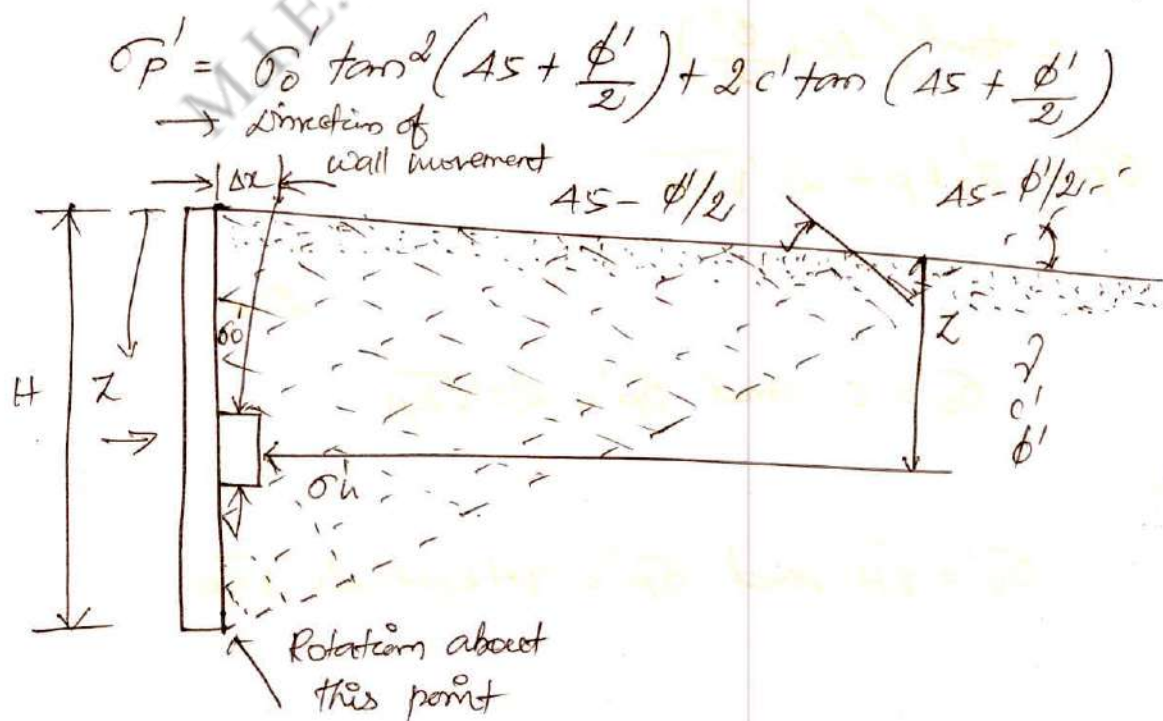 M.I.E.
σp' = σo' tan² (45 + φ'/2) + 2 c' tan (45 + φ'/2)
→ Direction of
wall movement
Δx
45 - φ'/2
45 - φ'/2
σo'
H
Z
Z
γ
c'
φ'
σh'
Rotation about
this point